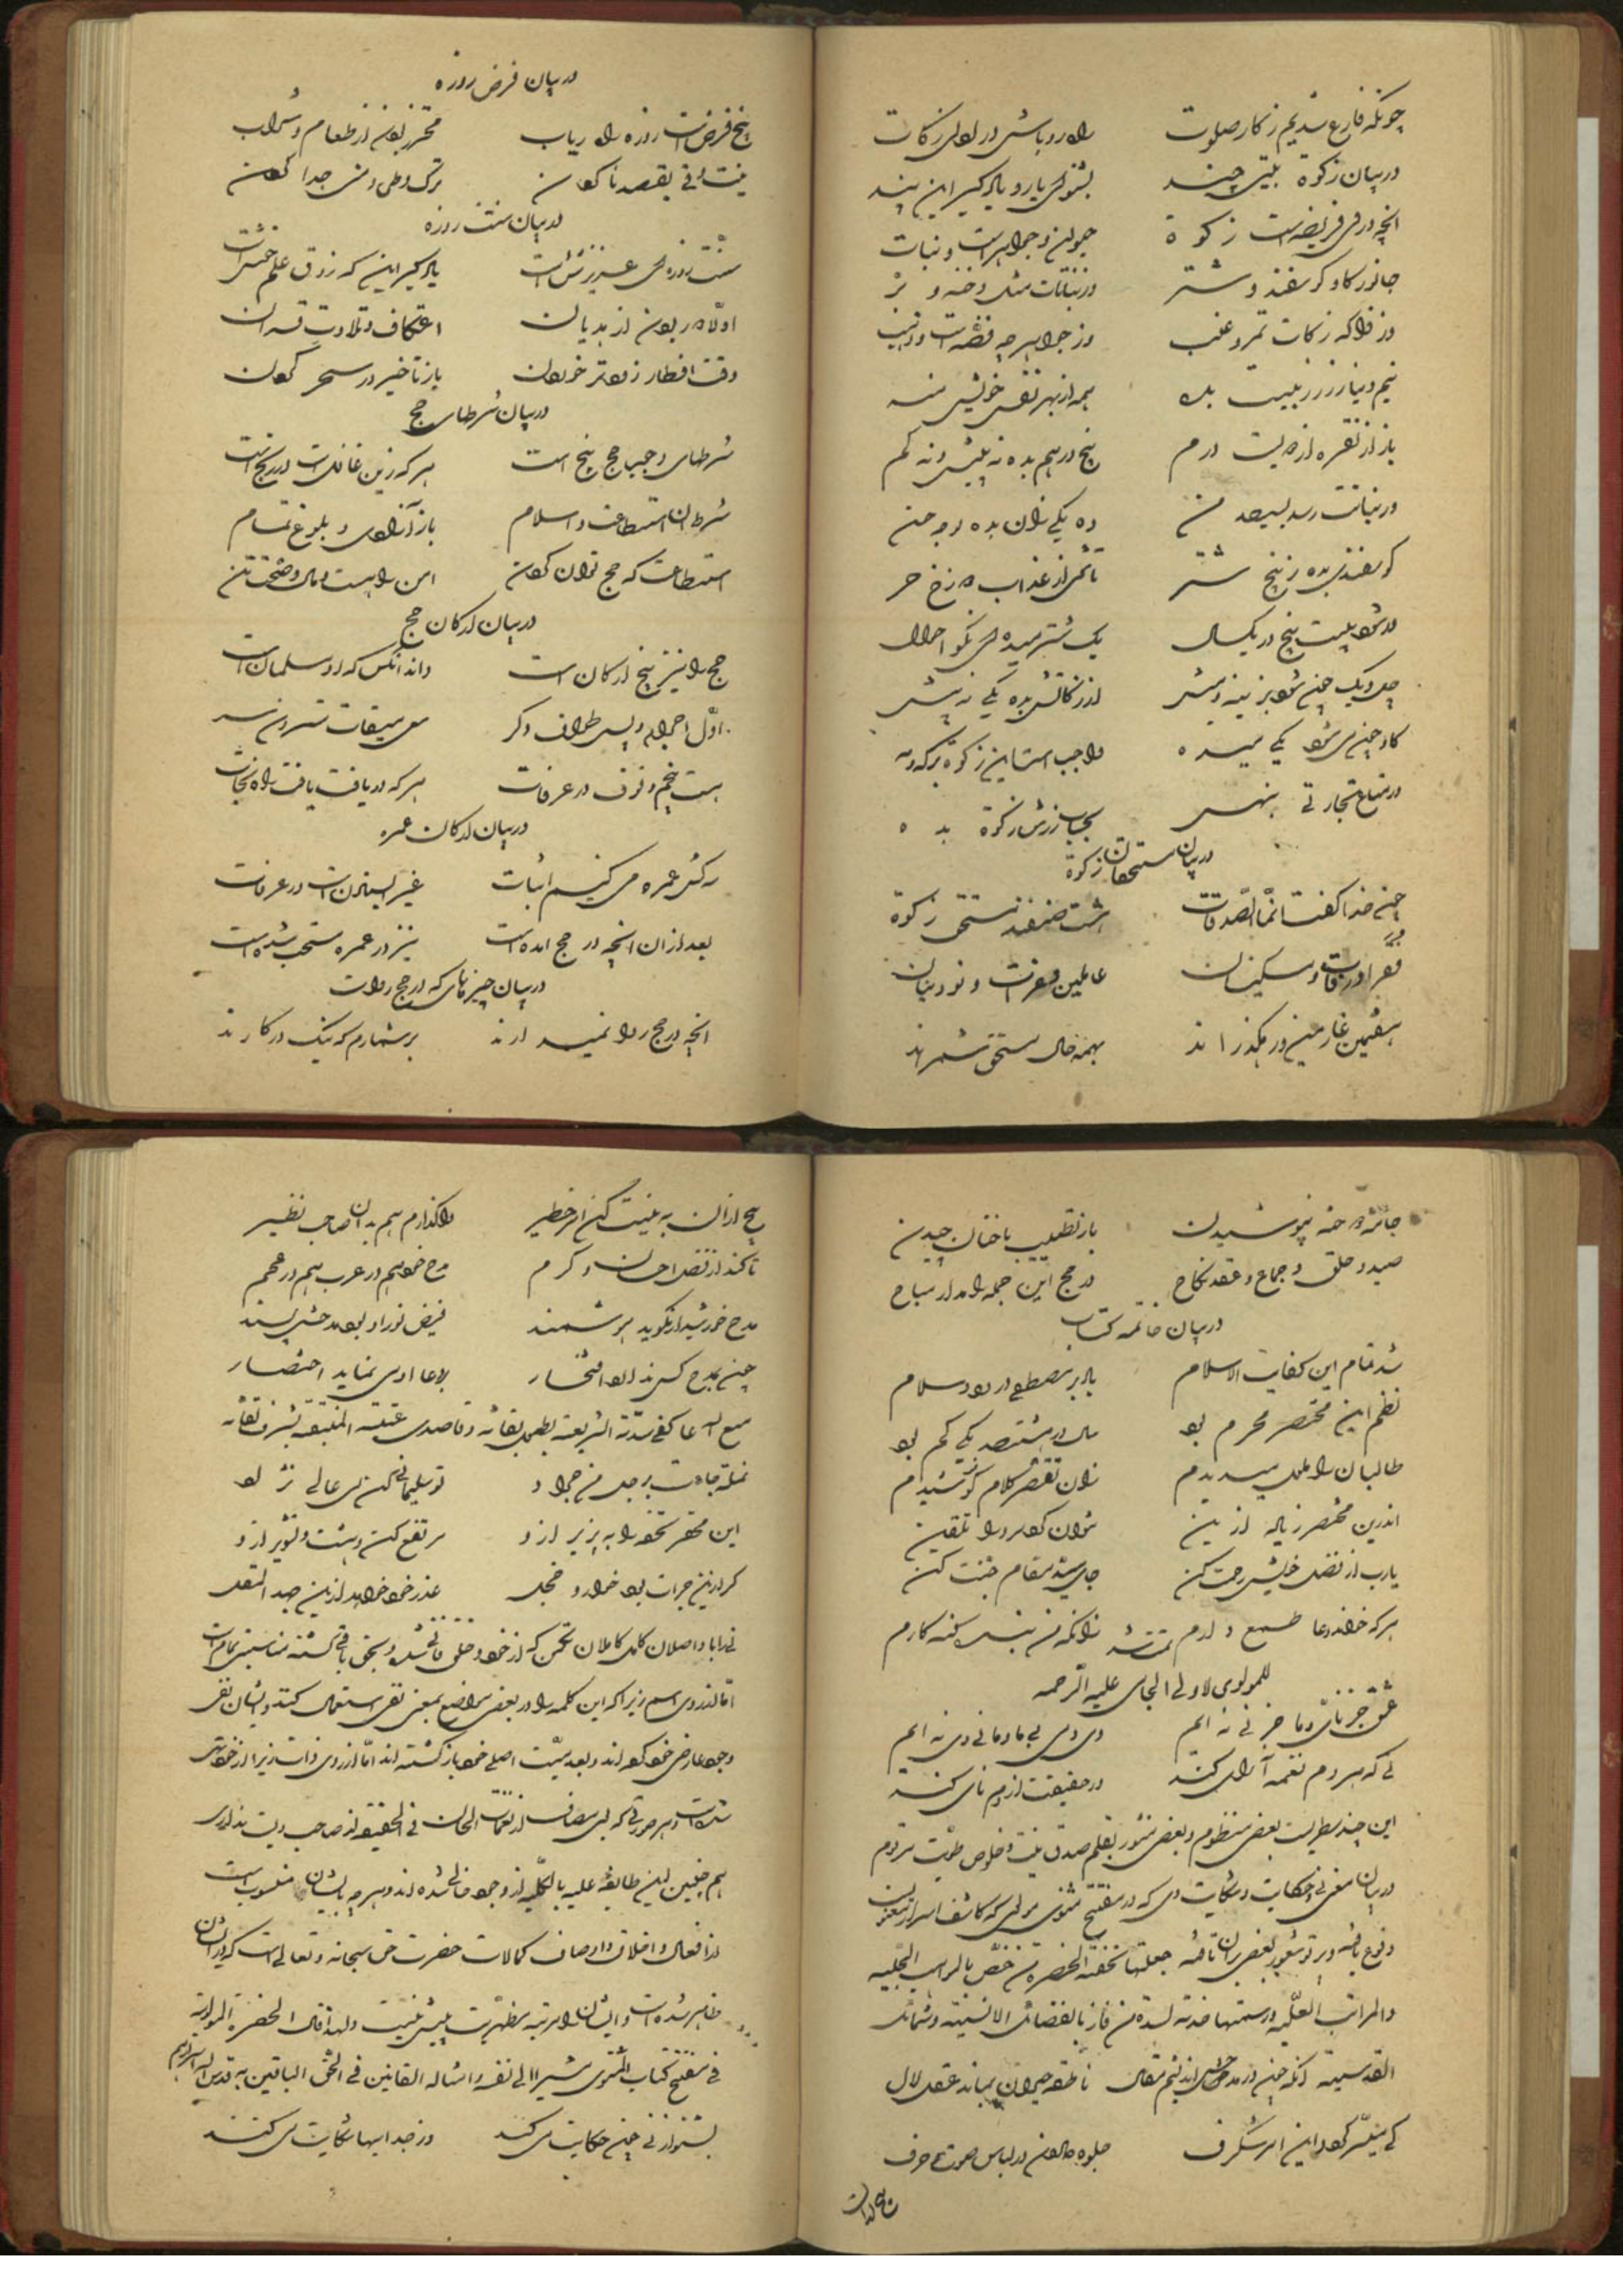 چونکه فارغ شدیم ز کار صلوت راه رو باش در ادای زکات
در بیان زکوة بیتی چند بشنو ای یار و یاد گیر این پند
انچه در وی فریضه است زکوة حیوان و جواهرست و نبات
جانور گاو و گوسفند و شتر در نباتات مثل و
وز فواکه زکات تمر و عنب وز جواهر چه فضه است و ذهب
نیم دینار زر ز بیست بده همه از بهر نفس خویش منه
باز از نقره از دویست درم پنج درهم بده نه بیش و نه کم
ور نباتت رسد بسیصد من ده یکی زان بده بوجه حسن
گوسفندی بده ز پنج شتر تا از عذاب دوزخ حر
ور شود بیست پنج در یکسال یک شتر میده ای نکو احوال
چل و یک چون شود بزینه و میش از زکاتش بده یکی نه بیش
گاو چون سی شود یکی میده واجب است این زکوة بر که و مه
در متاع تجارتی بنهی بحساب زرش زکوة بده
در بیان مستحقان زکوة
چون خدا گفت انما الصدقات هشت صنفند مستحق زکوة
فقرا در رقاب و مسکینان عاملین و نو دینان
هفتمین غارمین و رهگذرانند بهمه حال مستحق شمرند
در بیان فرض روزه
پنج فرضست روزه را دریاب محترز بودن از طعام و شراب
نیت و قی بقصد ناکردن ترک وطی و جدا کردن
در بیان سنت روزه
سنت روزه ای عزیز شش است یاد گیر این که ذوق علم خوش است
اولا دور بودن از هذیان اعتکاف و تلاوت قران
وقت افطار زودتر خوردن باز تاخیر در سحر کردن
در بیان شرطهای حج
شرطهای وجوب حج پنج است هر که زین غافلست در رنج است
شرط ان استطاعت و اسلام باز آزادی و بلوغ تمام
استطاعت که حج توان کردن امن راهست و مال و صحت تن
در بیان ارکان حج
حج را نیز پنج ارکان است داند آنکس که او مسلمان است
اول احرام و پس طواف دگر سعی میقات ستردن سر
هست پنجم وقوف در عرفات هر که دریافت یافت راه نجات
در بیان ارکان عمره
رکن عمره می کنیم اثبات غیر استادنست در عرفات
بعد از ان انچه در حج امده است نیز در عمره مستحب شده است
در بیان چیزهای که در حج رواست
انچه در حج روا نمیدارند بر شمارم که نیک در کارند
جائزه دوخته بپوشیدن باز تطییب ناخنان چیدن
صید و حلق و جماع و عقد نکاح در حج این جمله را مدار مباح
در بیان خاتمه کتاب
شد تمام این کفایت الاسلام باد بر مصطفی درود و سلام
نظم این مختصر محرم بود سال در هشتصد یکی کم بود
طالبان را ملول میدیدم زان بنقص کلام کوشیدم
اندرین مختصر زیاده ازین نتوان کودک را تلقین
یارب از فضل خویش رحمت کن جای سید مقام جنت کن
هر که خواند دعا طمع دارم زانکه من بنده گنه کارم تمت شد
للمولوی لاولی الجامی علیه الرحمه
عشق جز نائی و ما جز نی نه ایم وی دمی بی ما و ما بی وی نه ایم
نی که هر دم نغمه آرائی کند در حقیقت از دم نائی کند
این چند سطریست بعضی منظوم و بعضی منثور بقلم صدق نیت و خلوص طویت مرقوم
در بیان معنی نی و حکایت و شکایت وی که در مفتتح مثنوی مولوی که کاشف اسرار معنویست
وقوع یافته و پرتو شعور بعضی بران تافته جعلتها تحفة الحضرة من خص بالمواهب الجلیه
والمراتب العلیه ورسمتها خدمة لسدة من فاز بالفضائل الانسیة وشمائل
القدسیة آنکه چون در مدح اندیشم مقال ناطقه حیران بماند عقل لال
کی میسر گردد این امر شگرف جلوه دادن در لباس صوت و حرف
هیچ ازان به نیست کین امر خطیر واگذارم هم بدان صاحب نظیر
تا کند از فضل احسان و کرم مدح خود هم در عرب هم در عجم
مدح خورشید ار نگوید هوشمند فیض نور او بود مدحش پسند
چون بمدح کس ندارد افتخار بر دعا اولی نماید اختصار
متع الله عاکفی سدته الشریفة بطول بقائه وقاصدی عتبته المنیفة بشرف لقائه
نمله جاءت برجل من جراد تو سلیمانی کن ای عالی نژاد
این محقر تحفه را بپذیر ازو مرتفع کن وحشت و تشویر ازو
گر ازین جرات بود خوار و خجل عذر خود خواهد ازین جهد المقل
نی را با واصلان کامل که از خود و خلق فانی شده و بحق باقی گشته مناسبتی تمام است
اما از روی اسم زیرا که این کلمه را در بعضی مواضع بمعنی نفی استعمال کنند و ایشان نفی
وجود عارضی خود کرده اند و بعدمیت اصلی خود باز گشته اند اما از روی ذات زیرا
هر صورتی که بوی مضاف از نغمات الحان فی الحقیقه از صاحب ویست نه از وی
هم چنین این طایفه علیه بالکلیه از وجود خالی شده اند و هر چه بایشان منسوب است
از افعال و اخلاق و اوصاف کمالات حضرت حق سبحانه و تعالی است که در ایشان
ظاهر شده است و ایشان را مرتبه مظهریت بیش نیست ولهذا قال الحضرة المولویة
فی مفتتح کتاب المثنوی مشیرا الی نفسه وامثاله الفانین فی الحق الباقین به قدس الله اسرارهم
بشنو از نی چون حکایت می کند وز جدائیها شکایت می کند